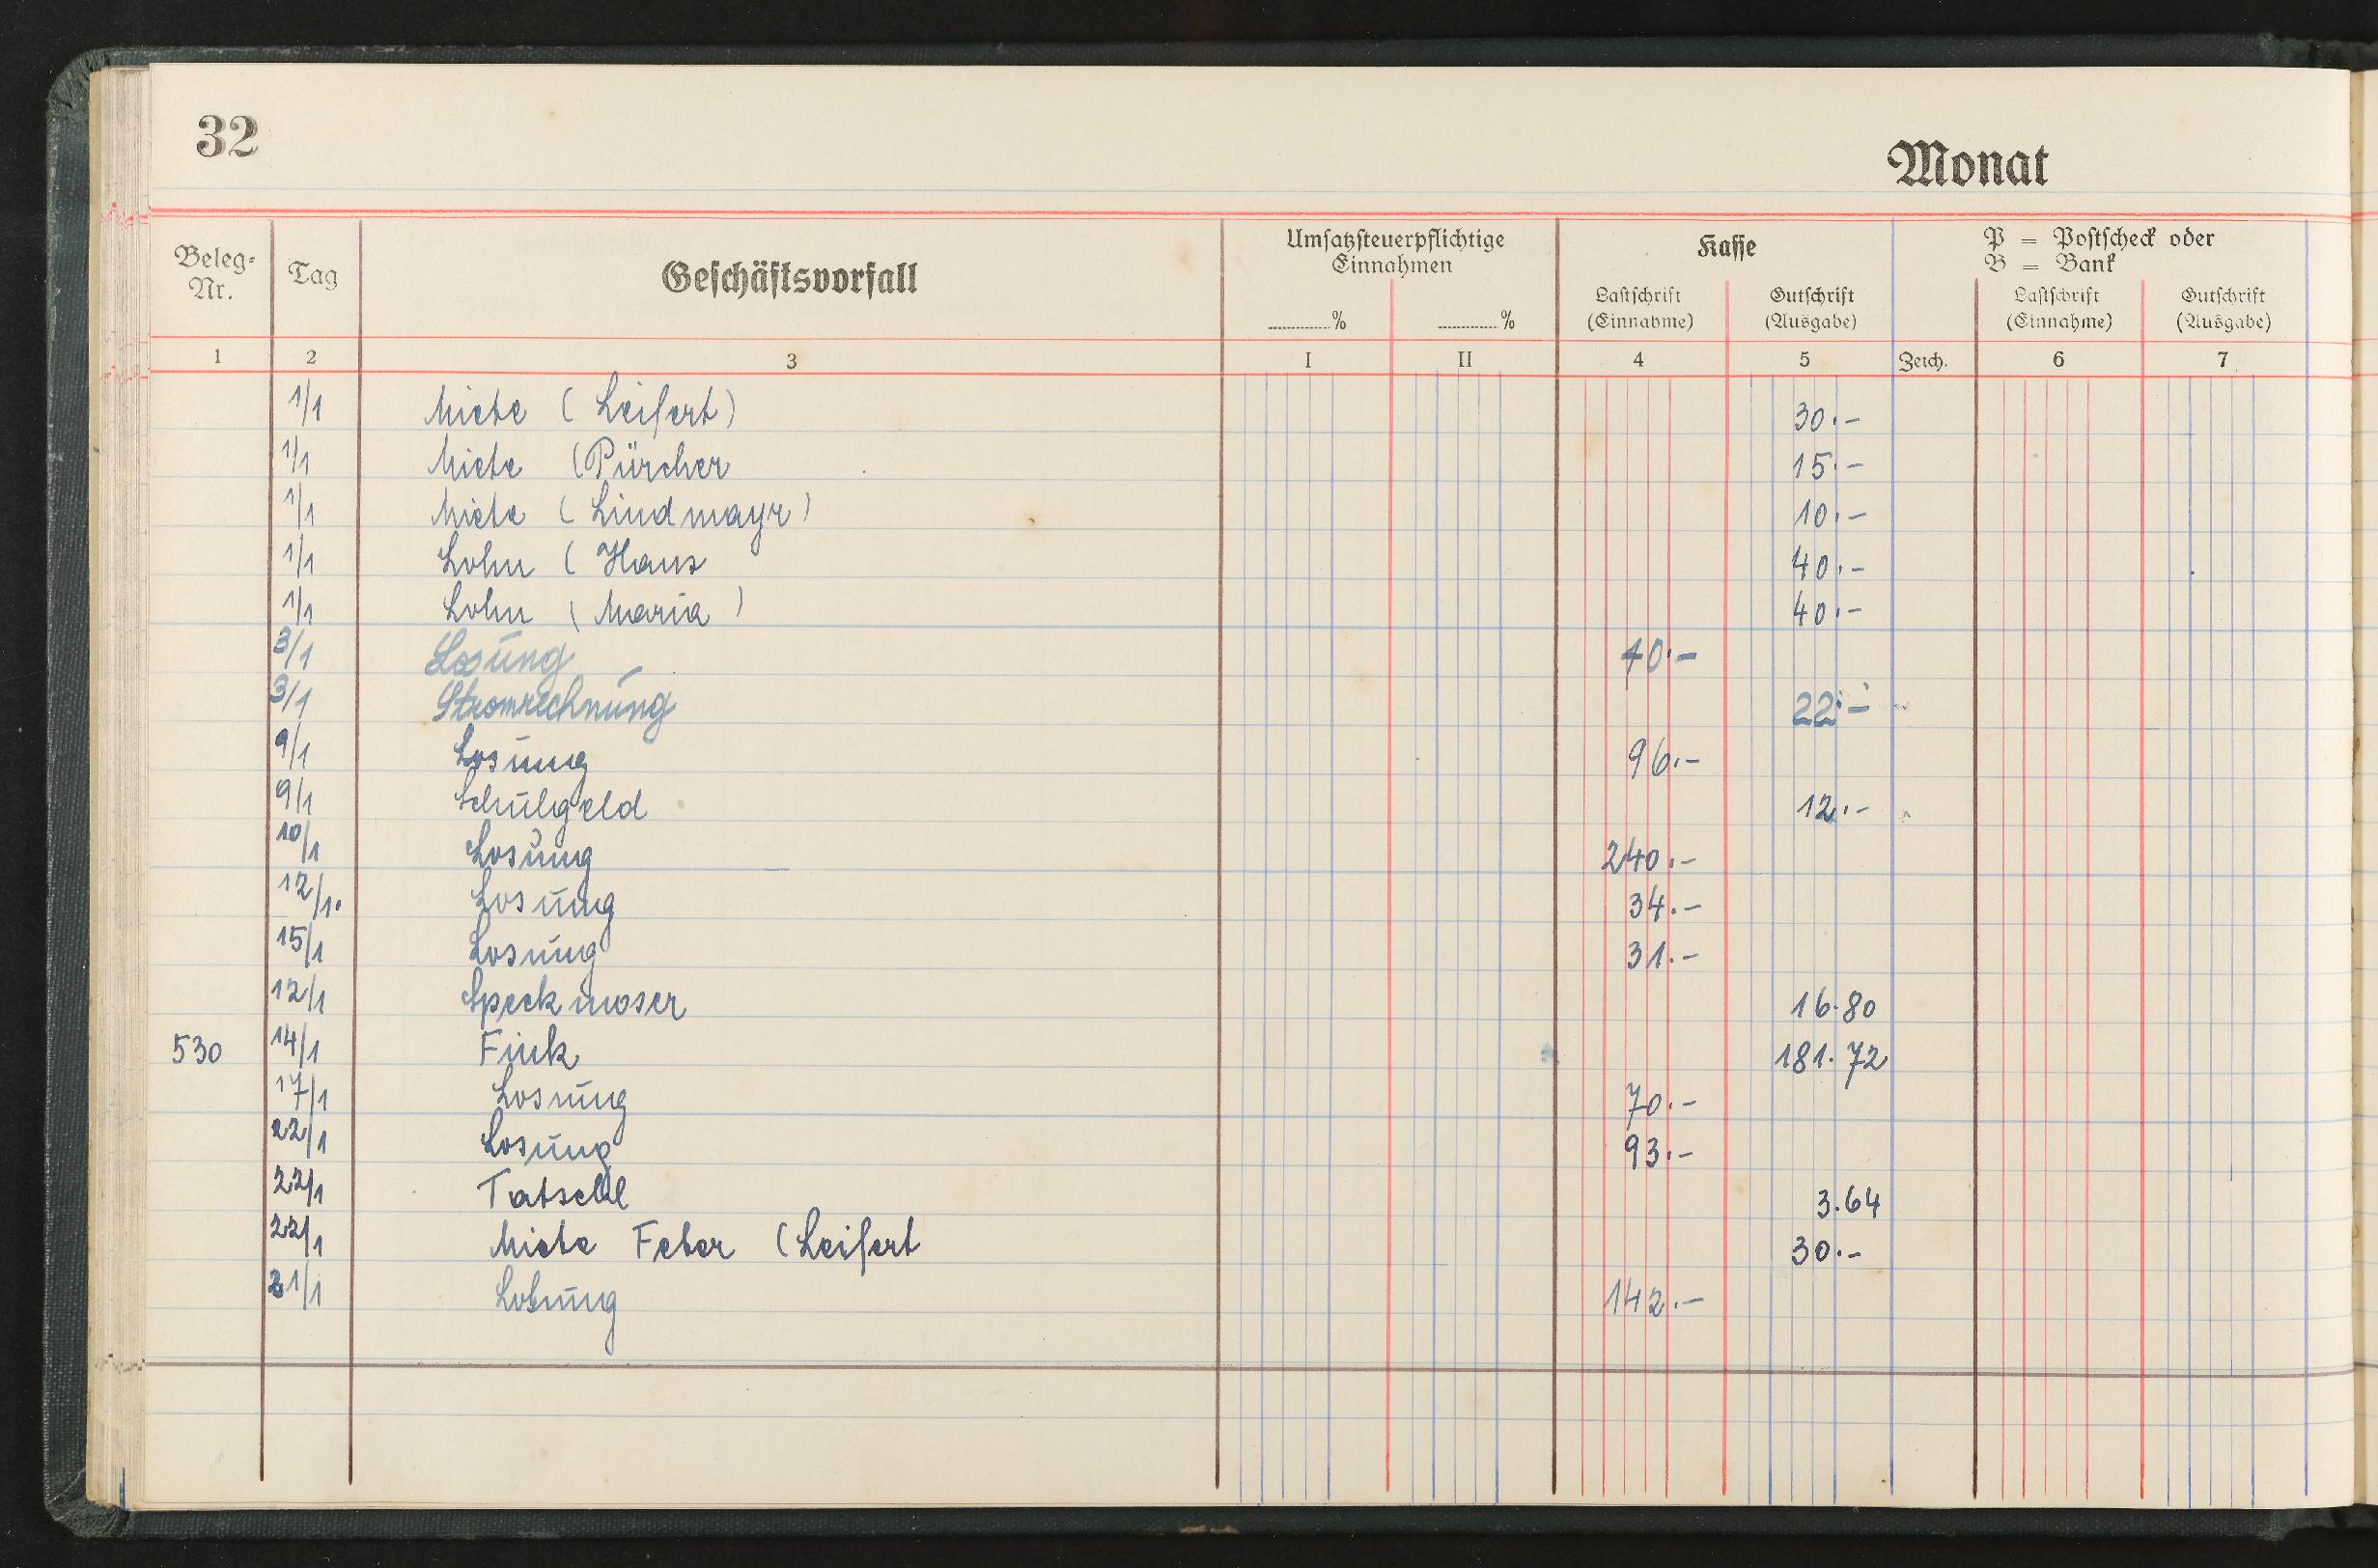 32
Monat
Beleg-Nr. Tag Geschäftsvorfall Umsatzsteuerpflichtige Einnahmen Kasse P = Postscheck oder B = Bank
............% ............% Lastschrift (Einnahme) Gutschrift (Ausgabe) Lastschrift (Einnahme) Gutschrift (Ausgabe)
1 2 3 I II 4 5 Zeich. 6 7
1/1 Miete (Leifert) 30.-
1/1 Miete (Pürcher 15.-
1/1 Miete (Lindmayr) 10.-
1/1 Lohn (Hans 40.-
1/1 Lohn (Maria) 40.-
3/1 Losung 40.-
3/1 Stromrechnung 22.-
9/1 Losung 96.-
9/1 Schulgeld 12.-
10/1 Losung 240.-
12/1. Losung 34.-
15/1 Losung 31.-
12/1 Speckmoser 16.80
530 14/1 Fink 181.72
17/1 Losung 70.-
22/1 Losung 93.-
22/1 3.64
22/1 Miete Feber (Leifert 30.-
31/1 Losung 142.-